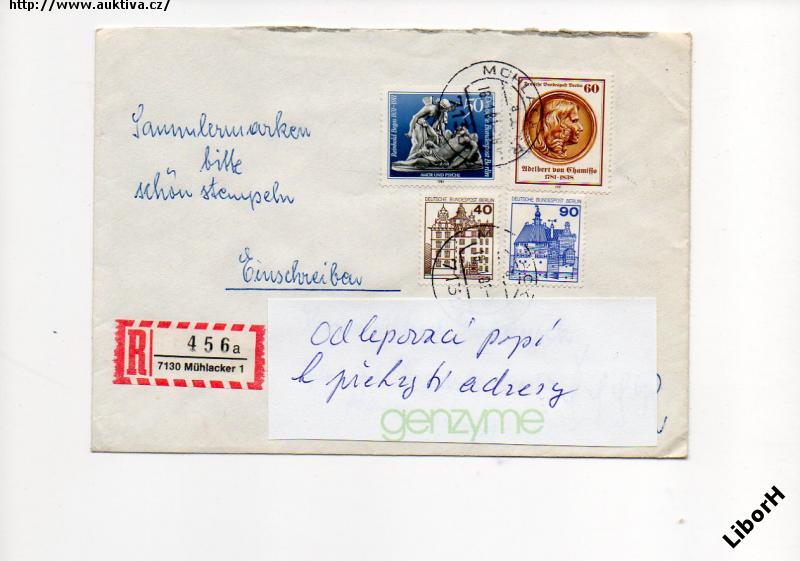 http://www.auktiva.cz/
Sammlermarken
bitte
schön stempeln
Einschreiben
50
Reinhold Begas 1831-1911
Deutsche Bundespost Berlin
AMOR UND PSYCHE
1981
Deutsche Bundespost Berlin
60
Adelbert von Chamisso
1781-1838
DEUTSCHE BUNDESPOST BERLIN
40
DEUTSCHE BUNDESPOST BERLIN
90
MÜHLACKER
713
R
456a
7130 Mühlacker 1
Odlepovací papí
k překrytí adresy
genzyme
LiborH